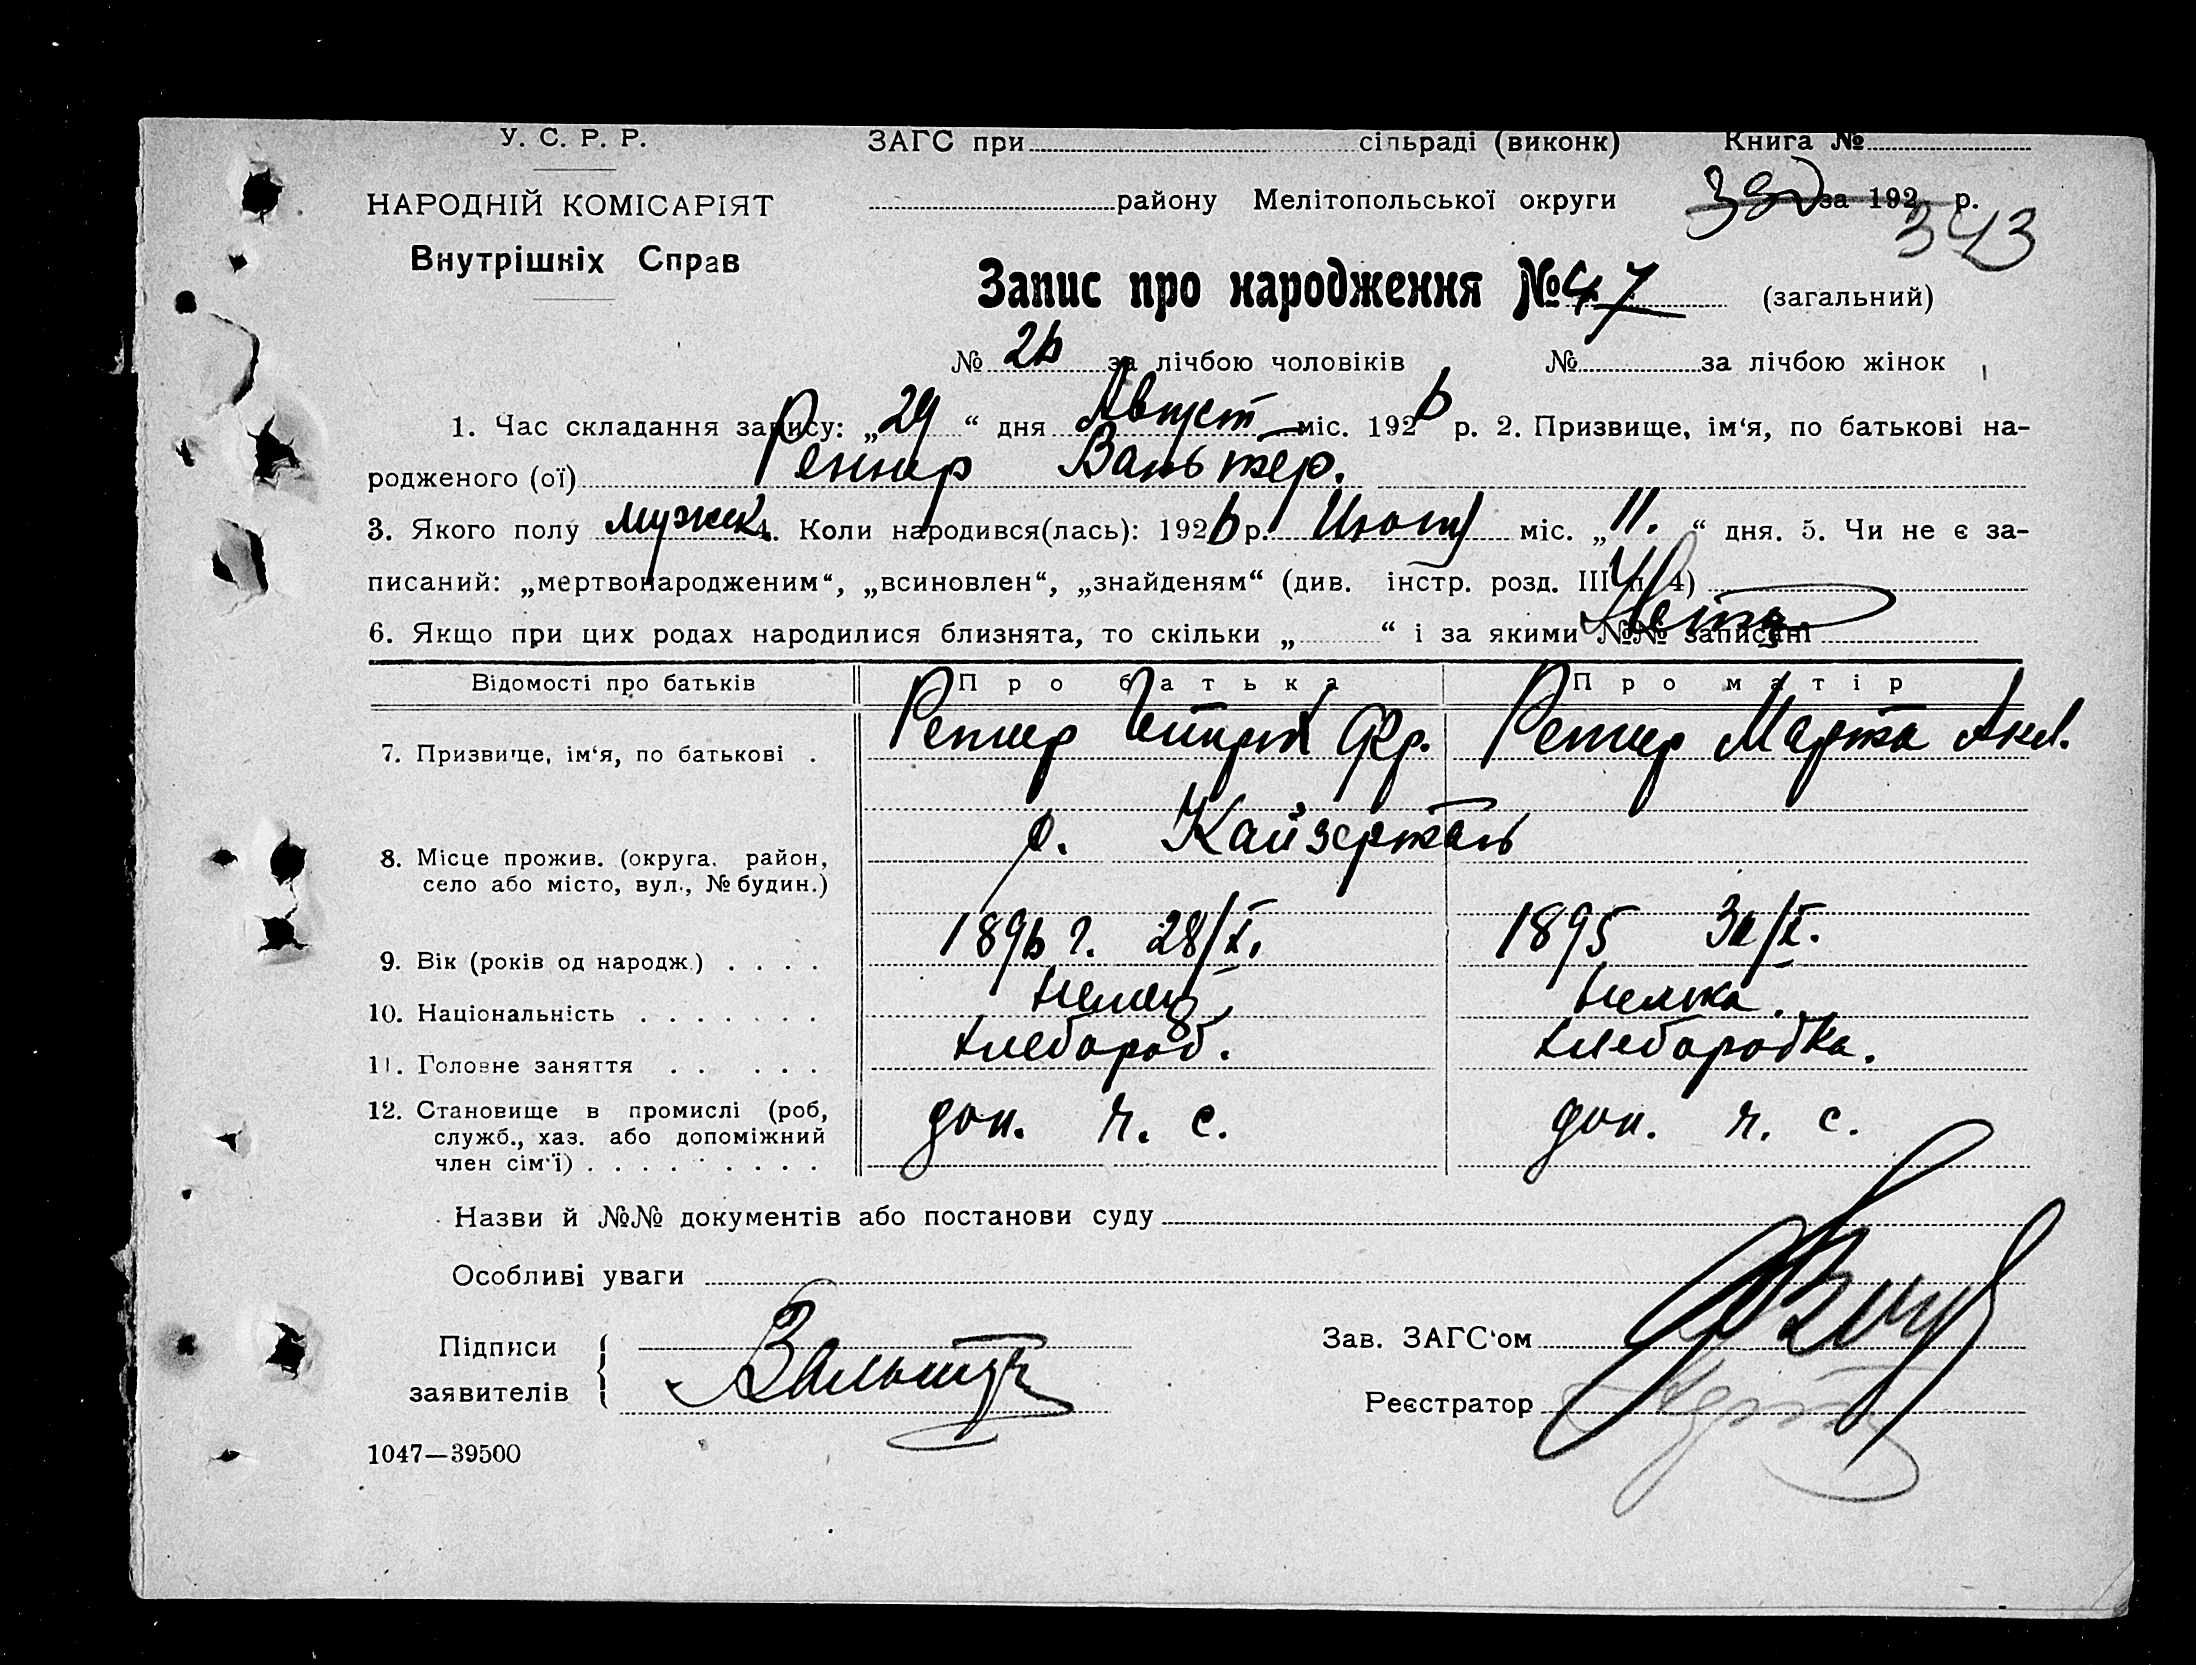 У. С. Р. Р.
ЗАГС при сільраді (виконк) Книга №
НАРОДНІЙ КОМІСАРІЯТ
району Мелітопольської округи за 192 р.
343
Внутрішніх Справ
Запис про народження № 47 (загальний)
№ 26 за лічбою чоловіків № за лічбою жінок
1. Час складання запису: „29“ дня Август міс. 1926 р. 2. Призвище, ім‘я, по батькові на-
родженого (ої) Реннер Вальтер.
3. Якого полу мужск 4. Коли народився(лась): 1926 р. міс. „11.“ дня. 5. Чи не є за-
писаний: „мертвонародженим“, „всиновлен“, „знайденям“ (див. інстр. розд. III п. 4)
6. Якщо при цих родах народилися близнята, то скільки „ “ і за якими №№ записані
Відомості про батьків Про батька Про матір
7. Призвище, ім‘я, по батькові . Реннер Фр. Реннер Марта
Кайзерталь
8. Місце прожив. (округа, район,
село або місто, вул., № будин.)
9. Вік (років од народж.) . . . . 1896 г. 28/X. 1895
10. Національність . . . . . . . Немец Немка.
11. Головне заняття . . . . . хлебороб. хлеборобка.
12. Становище в промислі (роб,
служб., хаз. або допоміжний доп. ч. с. доп. ч. с.
член сім‘ї) . . . . . . . . .
Назви й №№ документів або постанови суду
Особливі уваги
Підписи
Зав. ЗАГС‘ом
заявителів
Реєстратор
1047—39500